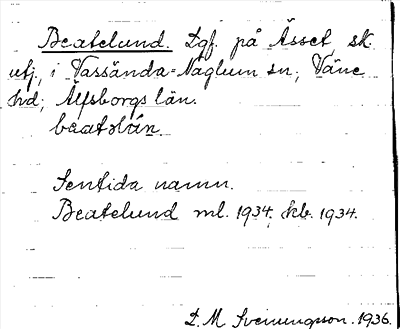 Beatelund. Lgf. på Åsset, sk.
utj., i Vassända=Naglum sn; Väne
hd; Älfsborgs län.
Sentida namn.
Beatelund ml. 1934, kb. 1934.
D. M. Svenungsson. 1936.